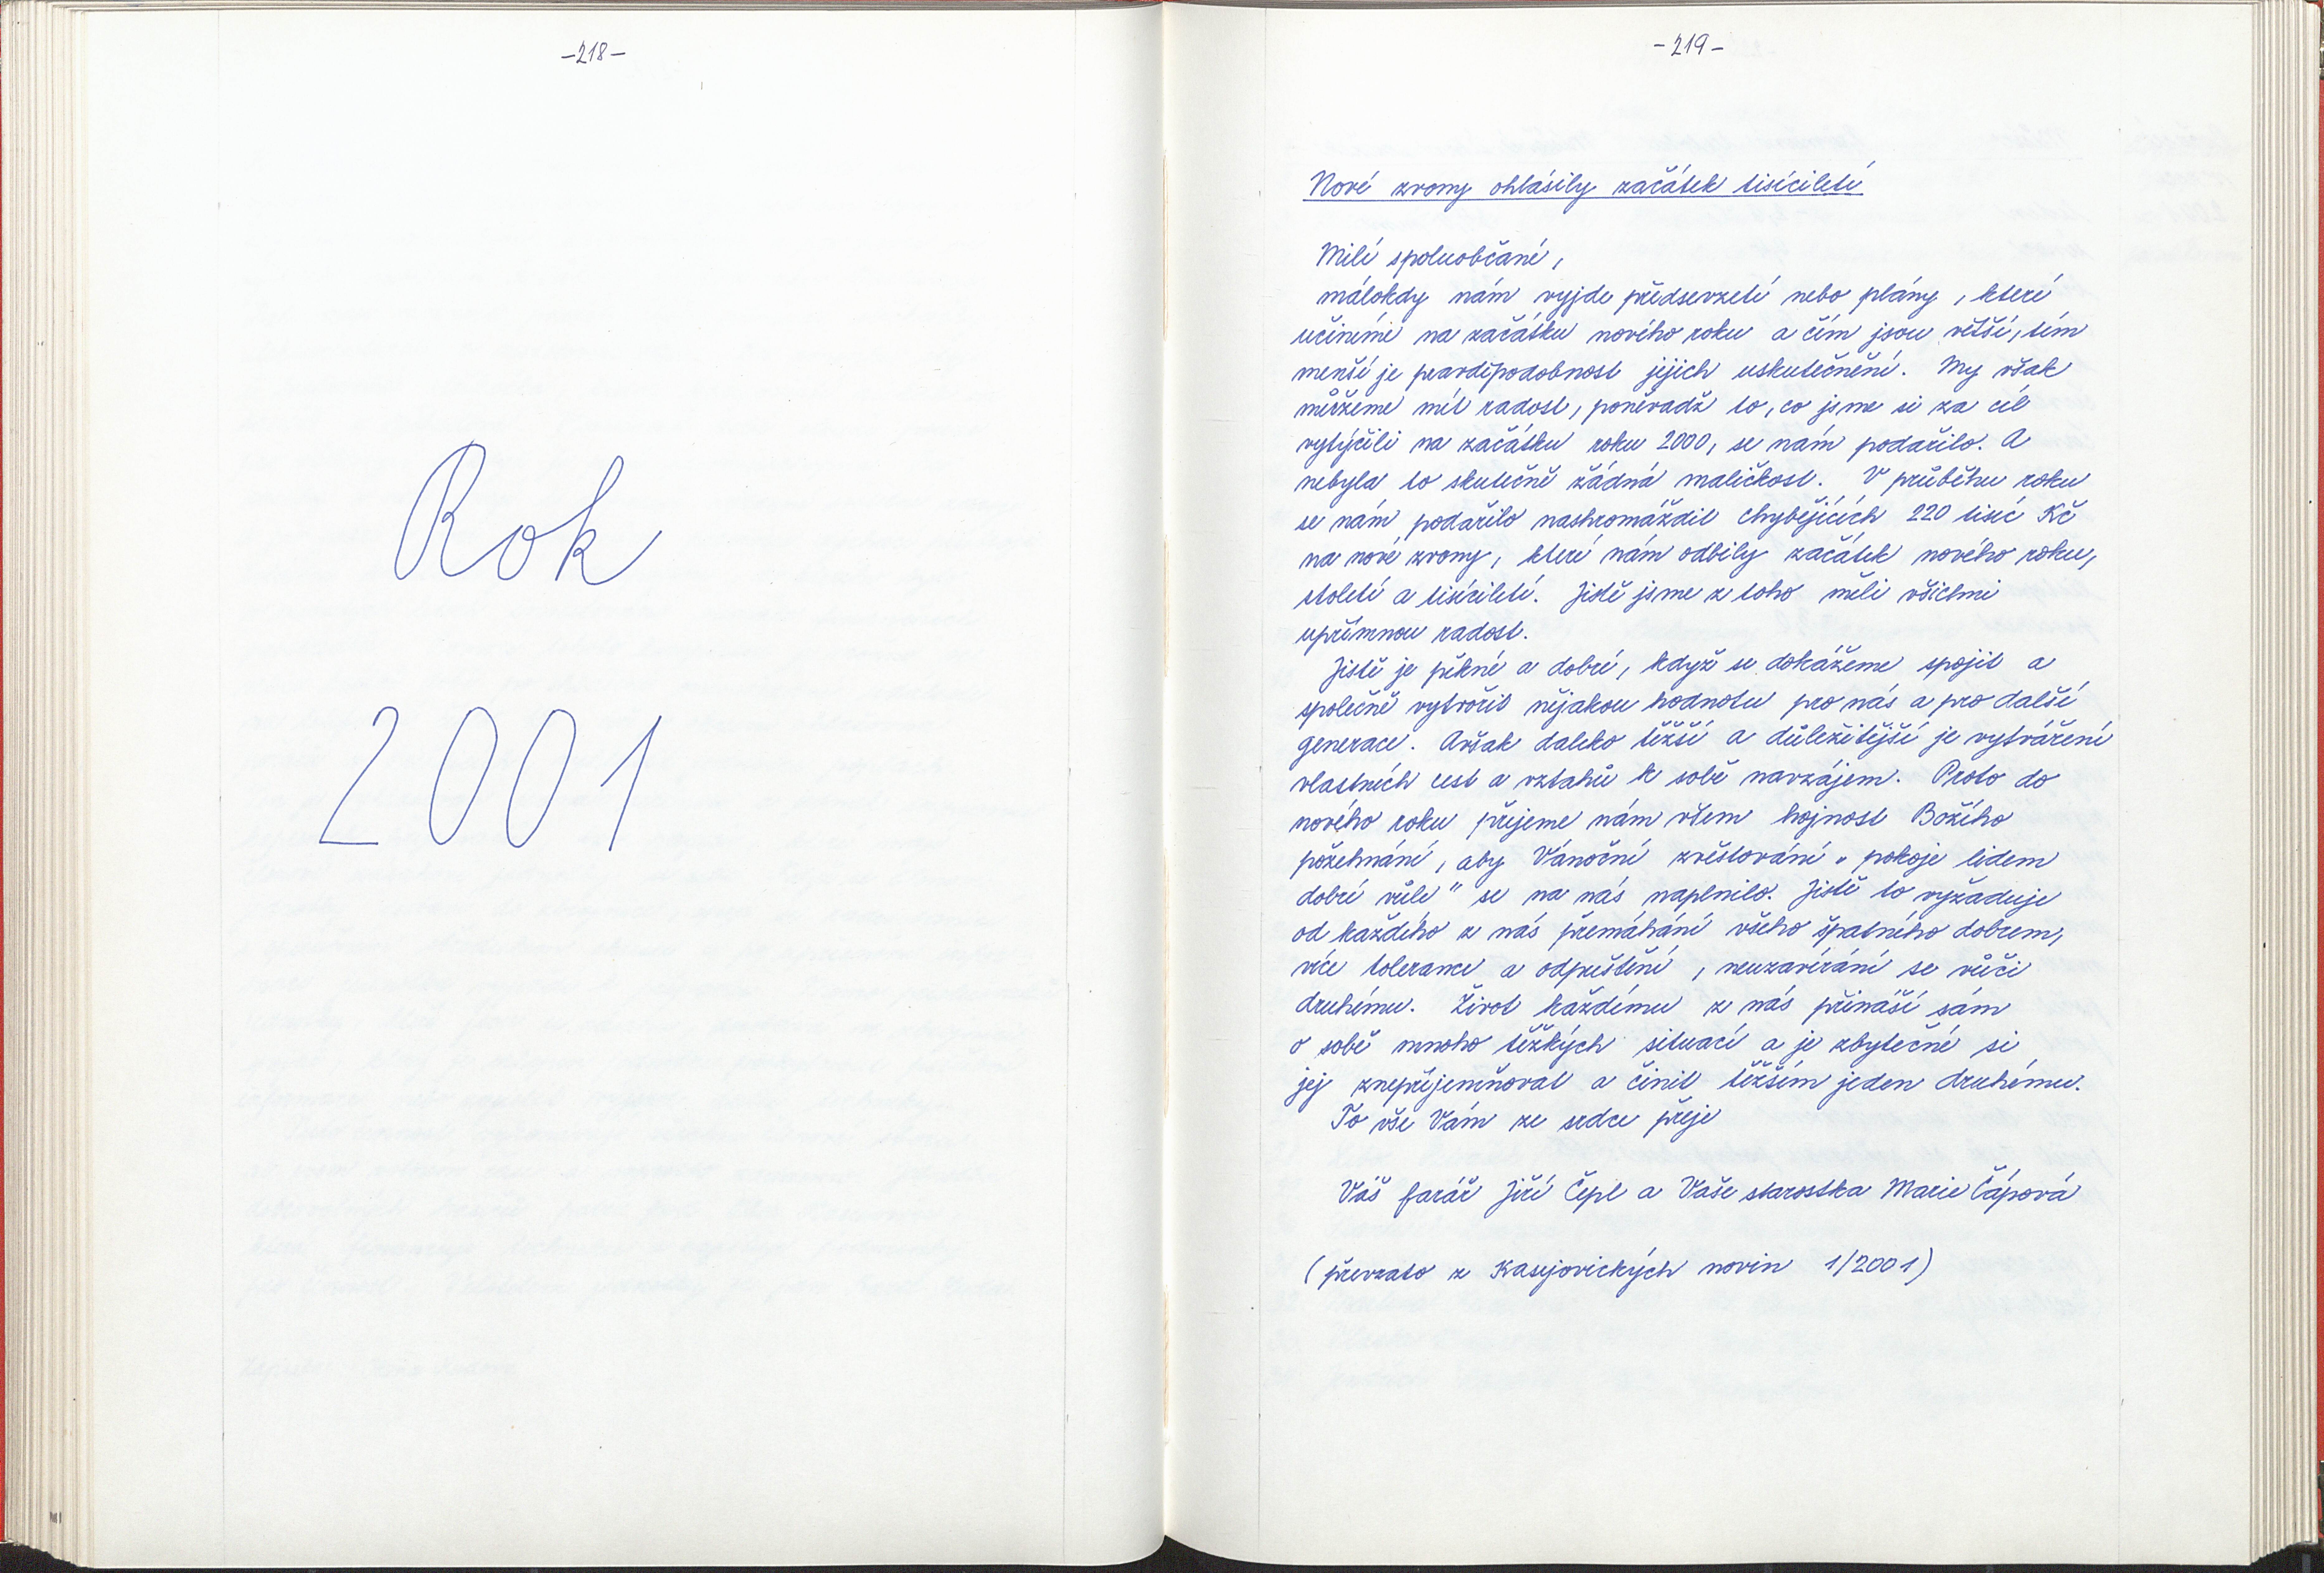 -218-
Rok
2001
-219-
Nové zvony ohlásily začátek tisíciletí
Milí spoluobčané,
málokdy nám vyjde předsevzetí nebo plány, které
učiníme na začátku nového roku a čím jsou větší, tím
menší je pravděpodobnost jejich uskutečnění. My však
můžeme mít radost, poněvadž to, co jsme si za cíl
vytýčili na začátku roku 2000, se nám podařilo. A
nebyla to skutečně žádná maličkost. V průběhu roku
se nám podařilo nashromáždit chybějících 220 tisíc Kč
na nové zvony, které nám odbily začátek nového roku,
století a tisíciletí. Jistě jsme z toho měli všichni
upřímnou radost.
Jistě je pěkné a dobré, když se dokážeme spojit a
společně vytvořit nějakou hodnotu pro nás a pro další
generace. Avšak daleko těžší a důležitější je vytváření
vlastních cest a vztahů k sobě navzájem. Proto do
nového roku přejeme nám všem hojnost Božího
požehnání, aby Vánoční zvěstování „pokoje lidem
dobré vůle" se na nás naplnilo. Jistě to vyžaduje
od každého z nás přemáhání všeho špatného dobrem,
více tolerance a odpuštění, neuzavírání se vůči
druhému. Život každému z nás přináší sám
o sobě mnoho těžkých situací a je zbytečné si
jej znepříjemňovat a činit těžším jeden druhému.
To vše Vám ze srdce přeje
Váš farář Jiří Čepl a Vaše starostka Marie Čápová
(převzato z Kasejovických novin 1/2001)